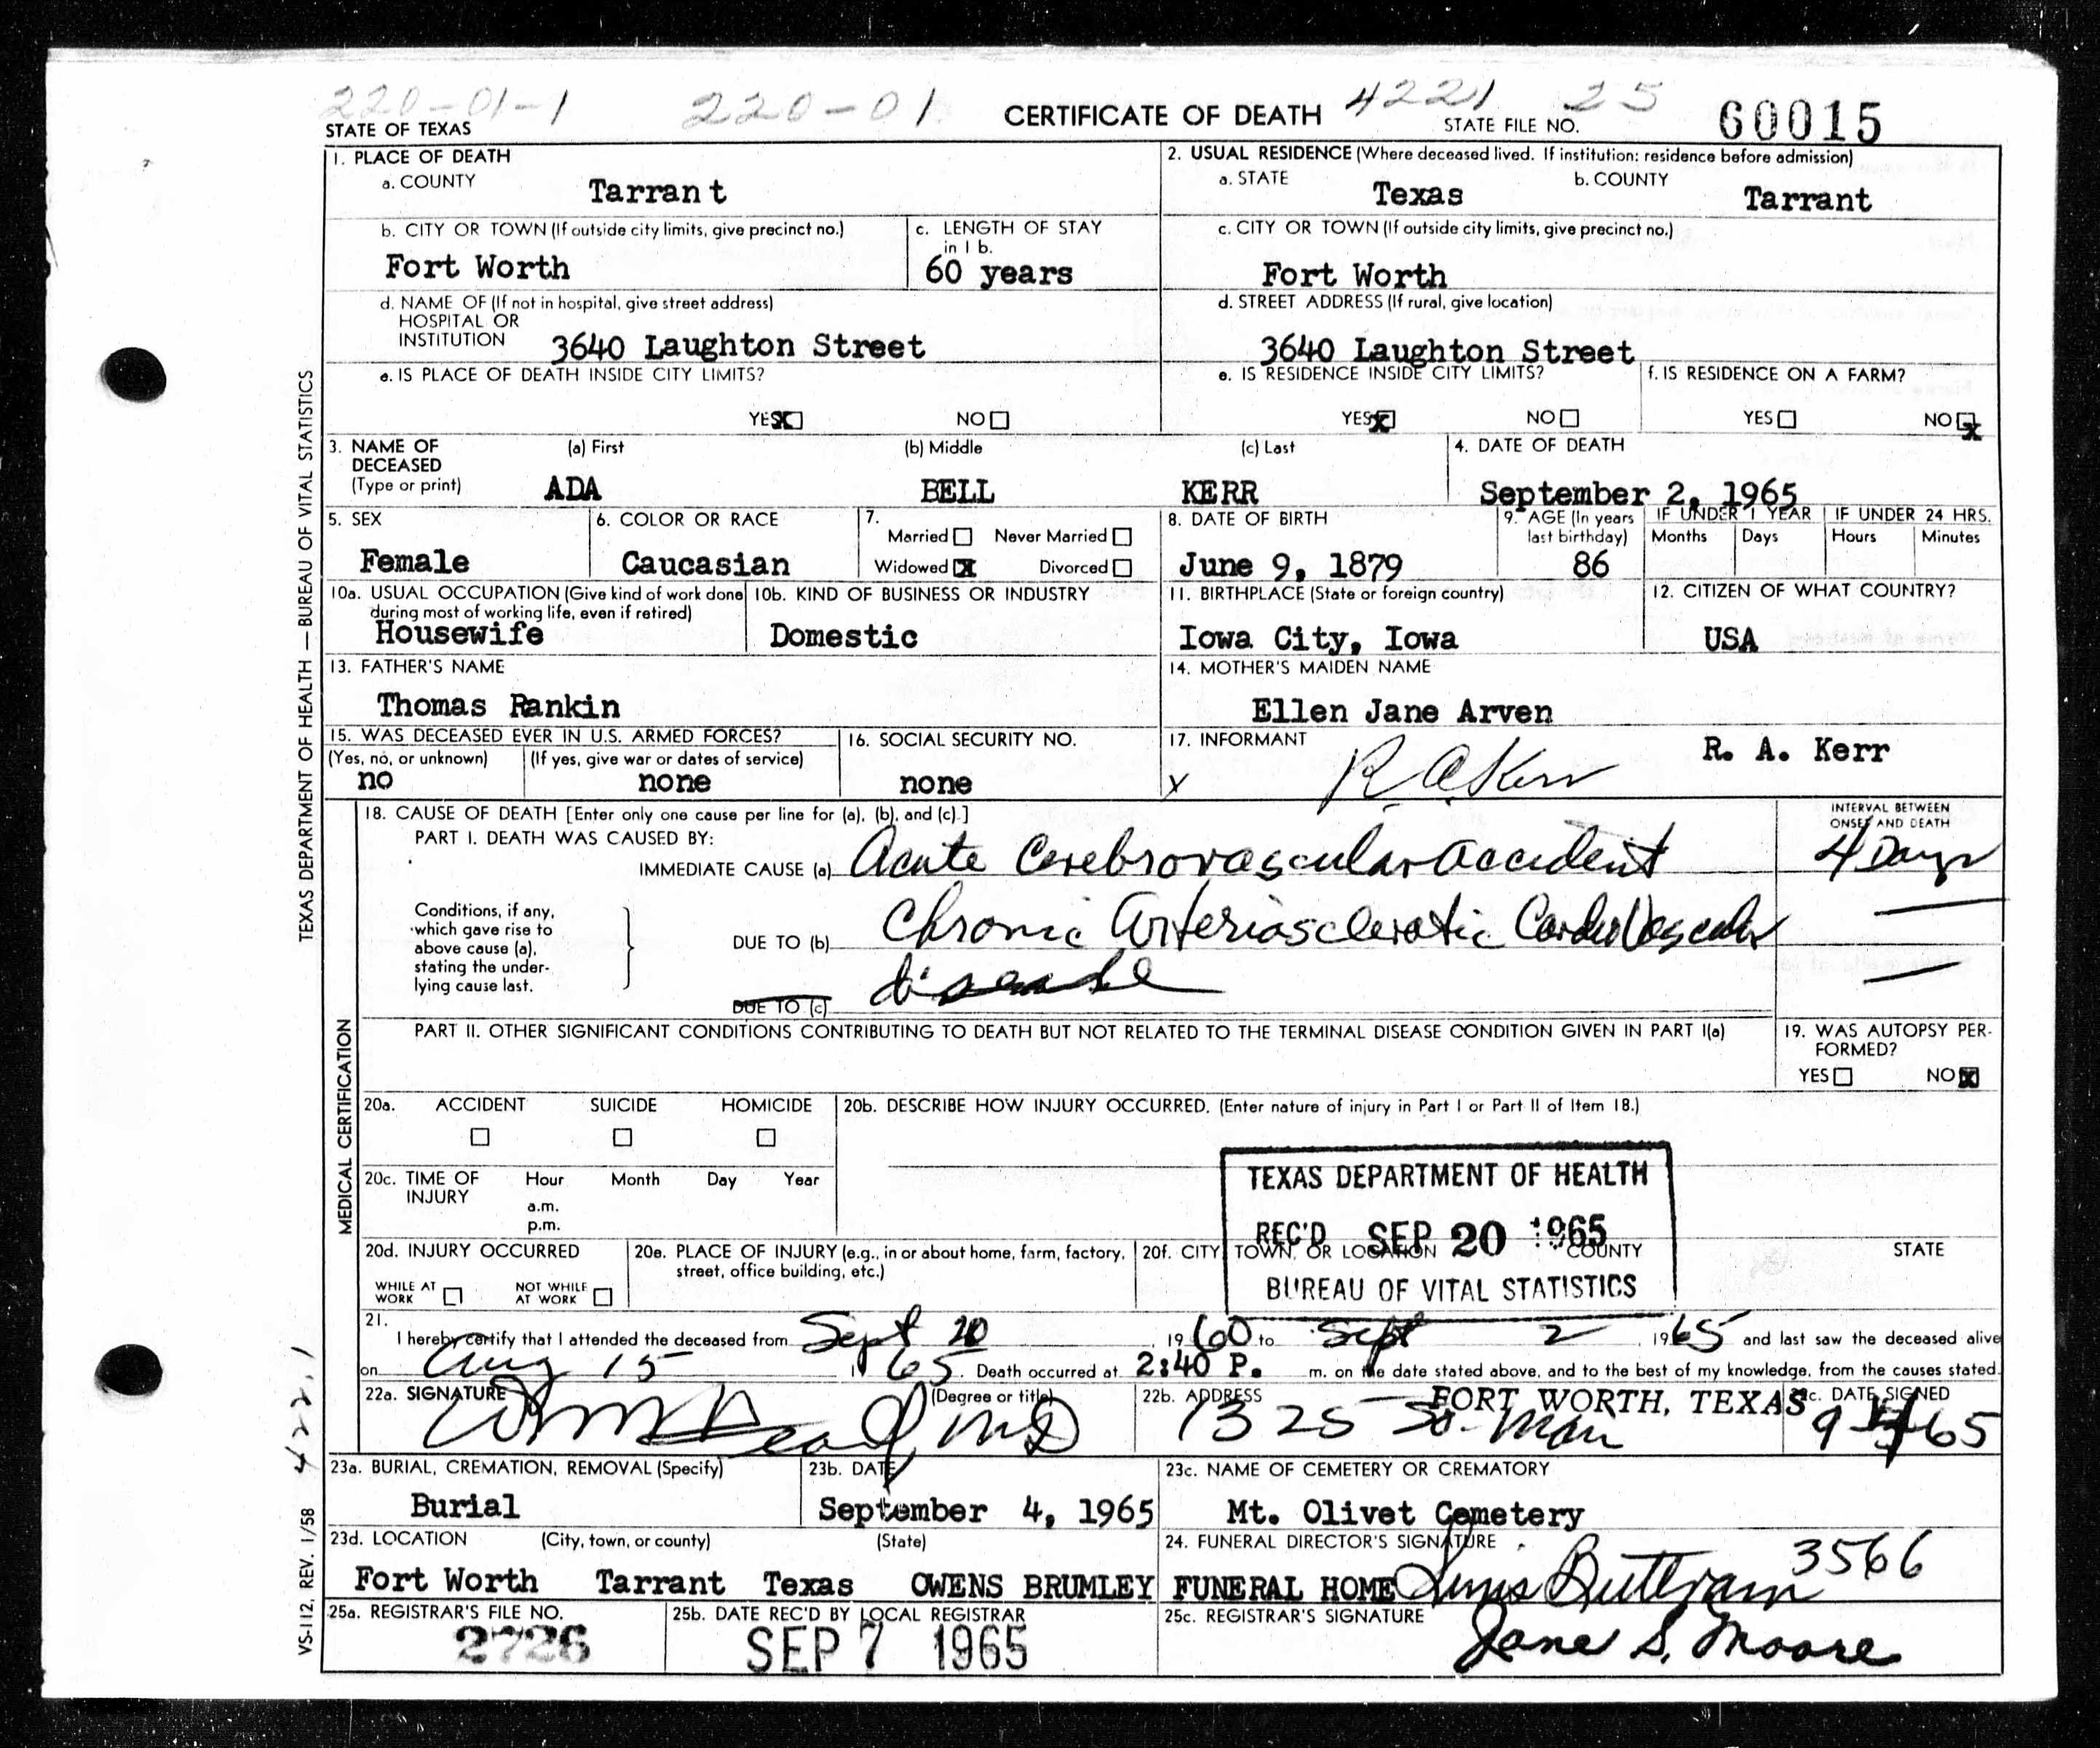 220-01-1 220-01 CERTIFICATE OF DEATH 4221 25
STATE OF TEXAS STATE FILE NO. 60015
1. PLACE OF DEATH
a. COUNTY Tarrant
2. USUAL RESIDENCE (Where deceased lived. If institution: residence before admission)
a. STATE Texas b. COUNTY Tarrant
b. CITY OR TOWN (If outside city limits, give precinct no.)
Fort Worth
c. LENGTH OF STAY
in 1 b.
60 years
c. CITY OR TOWN (If outside city limits, give precinct no.)
Fort Worth
d. NAME OF (If not in hospital, give street address)
HOSPITAL OR
INSTITUTION 3640 Laughton Street
d. STREET ADDRESS (If rural, give location)
3640 Laughton Street
e. IS PLACE OF DEATH INSIDE CITY LIMITS?
YES X NO
e. IS RESIDENCE INSIDE CITY LIMITS?
YES X NO
f. IS RESIDENCE ON A FARM?
YES NO X
3. NAME OF
DECEASED
(Type or print)
(a) First (b) Middle (c) Last
ADA BELL KERR
4. DATE OF DEATH
September 2, 1965
5. SEX
Female
6. COLOR OR RACE
Caucasian
7.
Married Never Married
Widowed X Divorced
8. DATE OF BIRTH
June 9, 1879
9. AGE (In years
last birthday)
86
IF UNDER 1 YEAR IF UNDER 24 HRS.
Months Days Hours Minutes
10a. USUAL OCCUPATION (Give kind of work done
during most of working life, even if retired)
Housewife
10b. KIND OF BUSINESS OR INDUSTRY
Domestic
11. BIRTHPLACE (State or foreign country)
Iowa City, Iowa
12. CITIZEN OF WHAT COUNTRY?
USA
13. FATHER'S NAME
Thomas Rankin
14. MOTHER'S MAIDEN NAME
Ellen Jane Arven
15. WAS DECEASED EVER IN U.S. ARMED FORCES?
(Yes, no, or unknown) (If yes, give war or dates of service)
no none
16. SOCIAL SECURITY NO.
none
17. INFORMANT R. A. Kerr
x R A Kerr
18. CAUSE OF DEATH [Enter only one cause per line for (a), (b), and (c).]
PART I. DEATH WAS CAUSED BY:
IMMEDIATE CAUSE (a) Acute Cerebrovascular accident
INTERVAL BETWEEN
ONSET AND DEATH
4 Days
Conditions, if any,
which gave rise to
above cause (a),
stating the under-
lying cause last.
DUE TO (b) Chronic Arteriosclerotic CardioVascular
disease
DUE TO (c)
PART II. OTHER SIGNIFICANT CONDITIONS CONTRIBUTING TO DEATH BUT NOT RELATED TO THE TERMINAL DISEASE CONDITION GIVEN IN PART I(a)
19. WAS AUTOPSY PER-
FORMED?
YES NO X
20a. ACCIDENT SUICIDE HOMICIDE
20b. DESCRIBE HOW INJURY OCCURRED. (Enter nature of injury in Part I or Part II of Item 18.)
20c. TIME OF
INJURY
Hour Month Day Year
a.m.
p.m.
TEXAS DEPARTMENT OF HEALTH
REC'D SEP 20 1965
BUREAU OF VITAL STATISTICS
20d. INJURY OCCURRED
WHILE AT
WORK
NOT WHILE
AT WORK
20e. PLACE OF INJURY (e.g., in or about home, farm, factory,
street, office building, etc.)
20f. CITY, TOWN, OR LOCATION COUNTY STATE
21.
I hereby certify that I attended the deceased from Sept 20, 1960 to Sept 2, 1965 and last saw the deceased alive
on Aug 15 1965. Death occurred at 2:40 P. m. on the date stated above, and to the best of my knowledge, from the causes stated.
22a. SIGNATURE (Degree or title)
MD
22b. ADDRESS FORT WORTH, TEXAS
1325 So. Main
22c. DATE SIGNED
23a. BURIAL, CREMATION, REMOVAL (Specify)
Burial
23b. DATE
September 4, 1965
23c. NAME OF CEMETERY OR CREMATORY
Mt. Olivet Cemetery
23d. LOCATION (City, town, or county) (State)
Fort Worth Tarrant Texas
24. FUNERAL DIRECTOR'S SIGNATURE 3566
OWENS BRUMLEY FUNERAL HOME Buttram
25a. REGISTRAR'S FILE NO.
2726
25b. DATE REC'D BY LOCAL REGISTRAR
SEP 7 1965
25c. REGISTRAR'S SIGNATURE
Jane S. Moore
TEXAS DEPARTMENT OF HEALTH — BUREAU OF VITAL STATISTICS
MEDICAL CERTIFICATION
VS-112, REV. 1/58
422.1